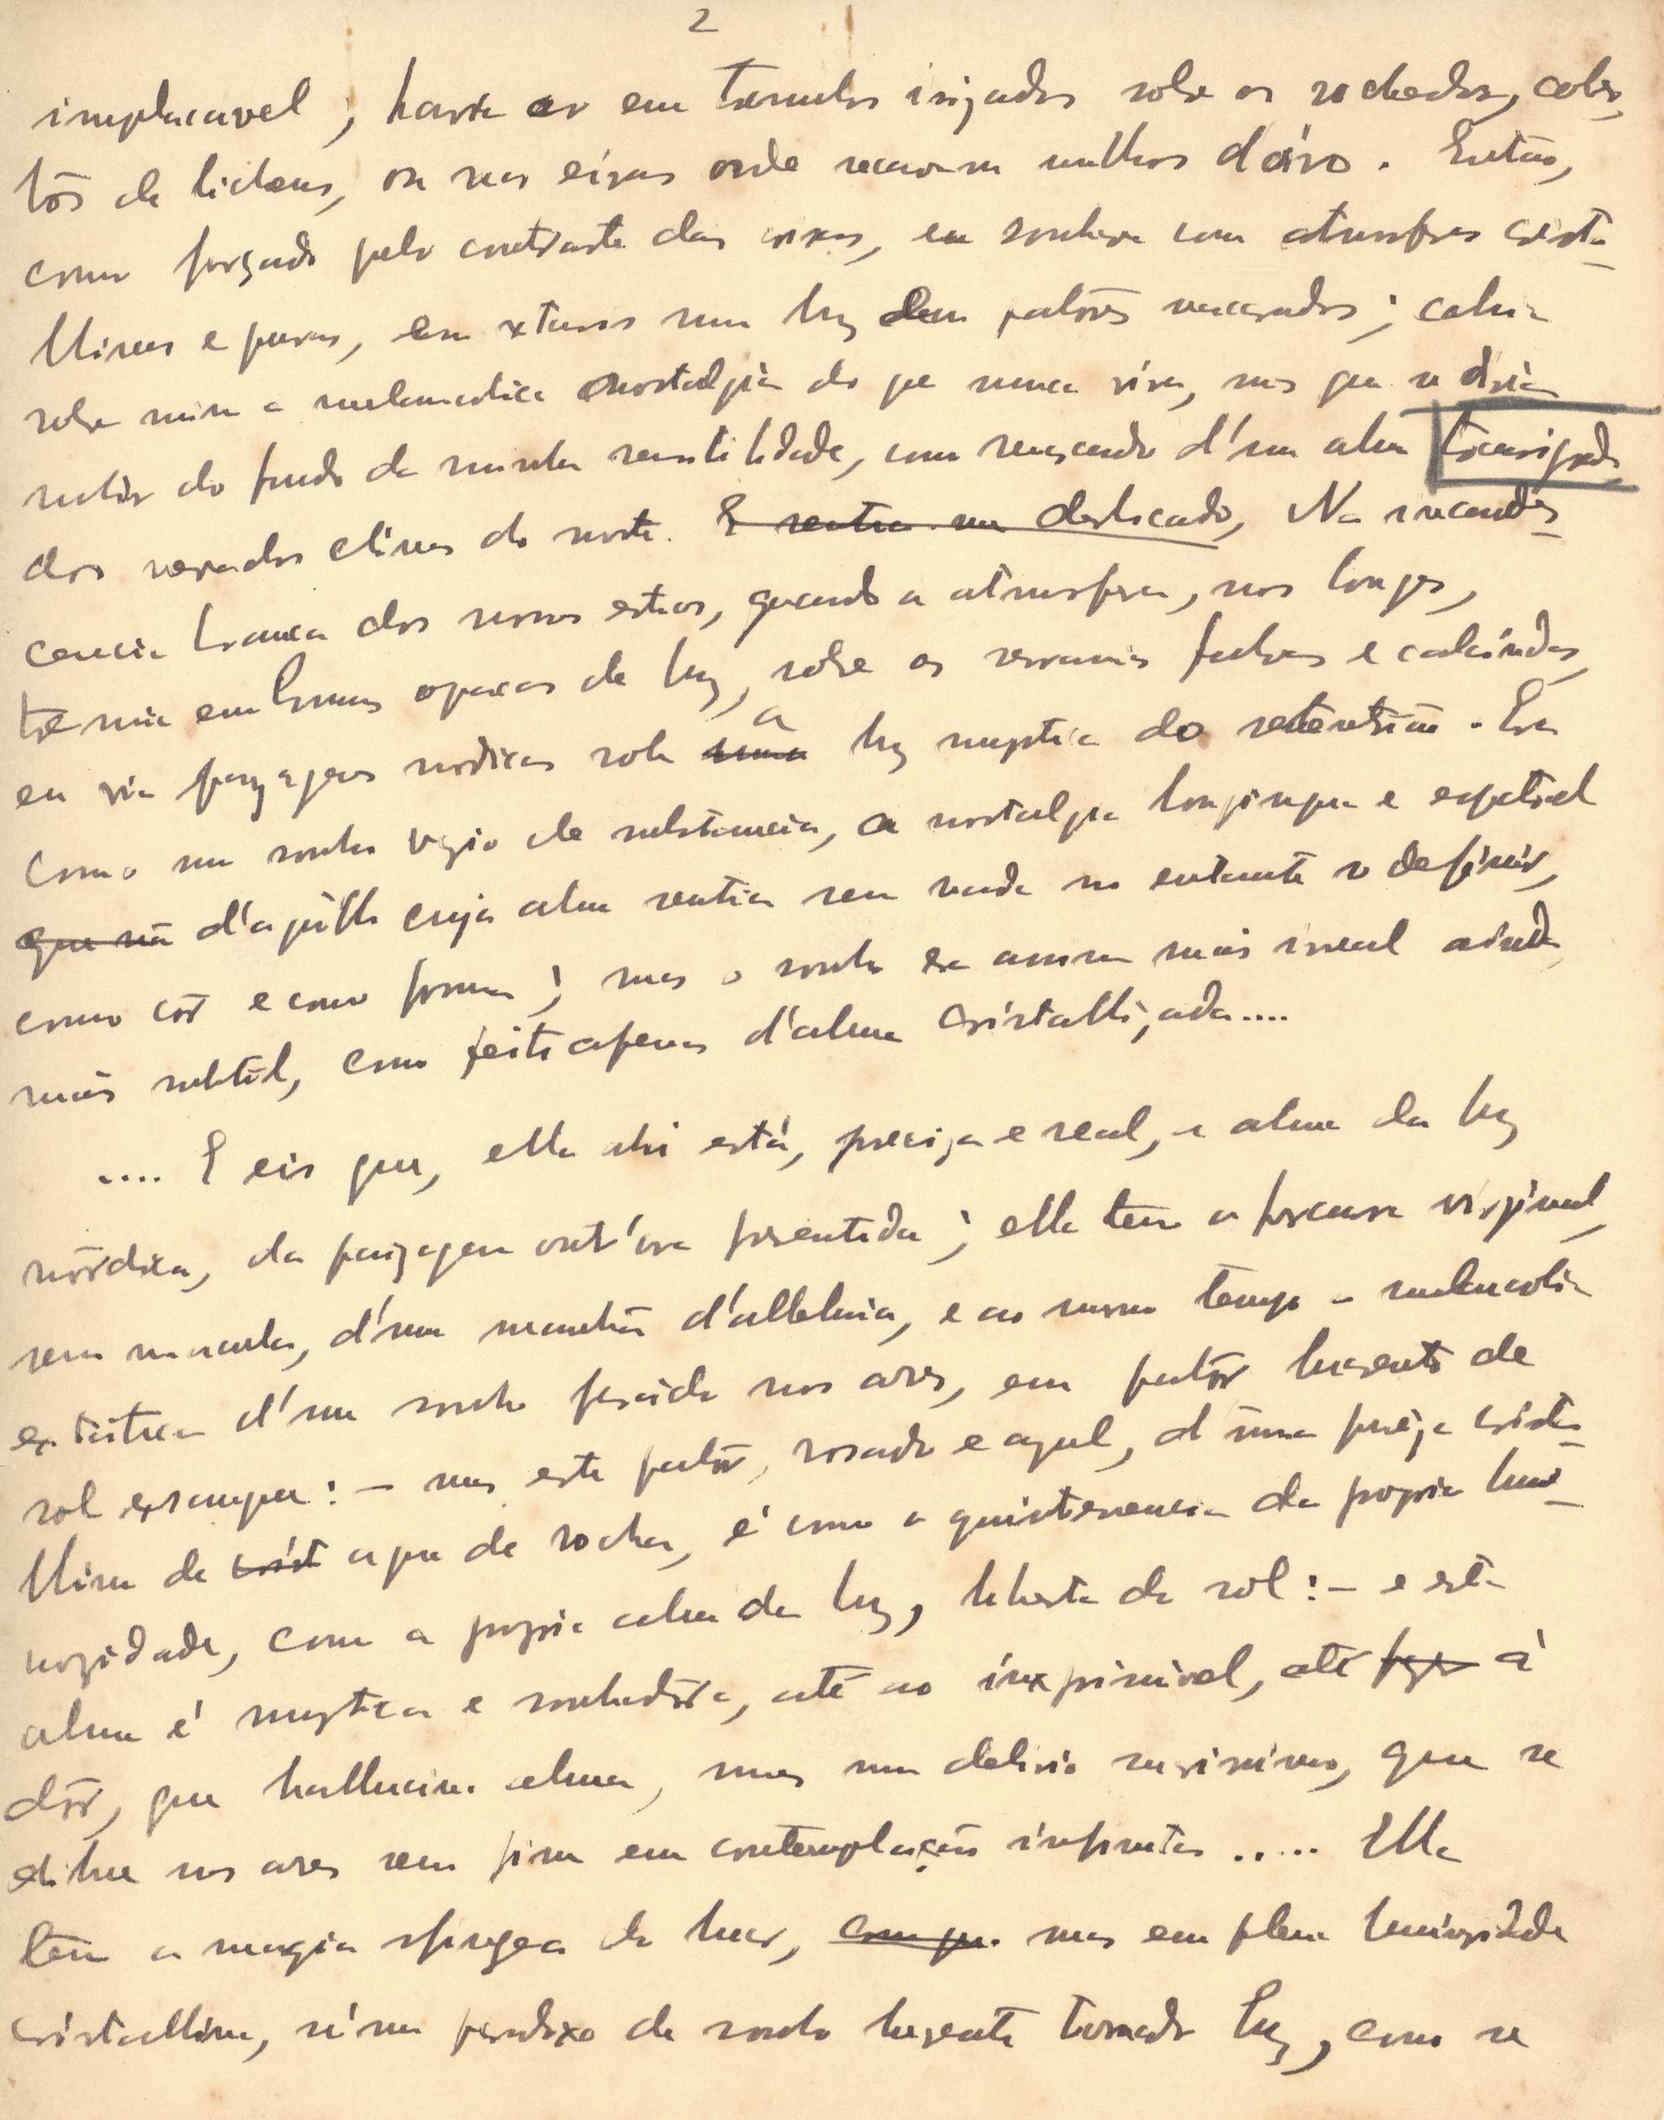 2
implacavel; hasta ar em tumulos irizados sobre os rochedos, cober-
tos de lichens, ou nas eiras onde recavam milhos d'oiro. Então,
como forçado pelo contraste das coisas, eu sonhava com atmosferas crista-
llinas e puras, em extasis num luz em palôres macerados; cahia
sobre mim a melancolica nostalgia do que nunca vira, mas que se diria
subir do fundo da minha sensibilidade, como renascendo d'uma alma
dos nevados climas do norte. E sentia-me deslocado, Na incandes-
cencia branca dos nossos estios, quando a atmosfera, nos longes,
tremia em brumas opacas de luz, sobre as serranias fulvas e calcinadas,
eu via payzagens nordicas sob uma a luz mystica do setentrião. Era
como um sonho vazio de substancia, a nostalgia longinqua e espectral
que não d'aquillo cuja alma sentia sem nada no entanto o definir,
como côr e como forma; mas o sonho era assim mais irreal ainda,
mais subtil, como feito apenas d'alma cristallizada....
.... E eis que, ella ahi está, preciza e real, a alma da luz
nórdica, da paizagem outr'ora presentida; ella tem a frescura virginal,
sem macula, d'uma manhã d'alleluia, e ao mesmo tempo a melancolia
extatica d'um sonho perdido nos ares, em palôr lucente de
sol exsangue: – mas este palôr, rosado e azul, d'uma pureza crista-
llina de crist agua de rocha, é como a quintessencia da propria lumi-
nozidade, como a propria alma da luz, liberta do sol: – e esta
alma é mystica e sonhadora, até ao inexprimivel, até á
dôr, que hallucina a alma, mas num delirio suavissimo, que se
dilue nos ares sem fim em contemplação infinita ..... Ella
tem a magia sfingea do luar, como que mas em plena luminozidade
cristallina, n'um paradoxo de sonho lucente tornado luz, como se